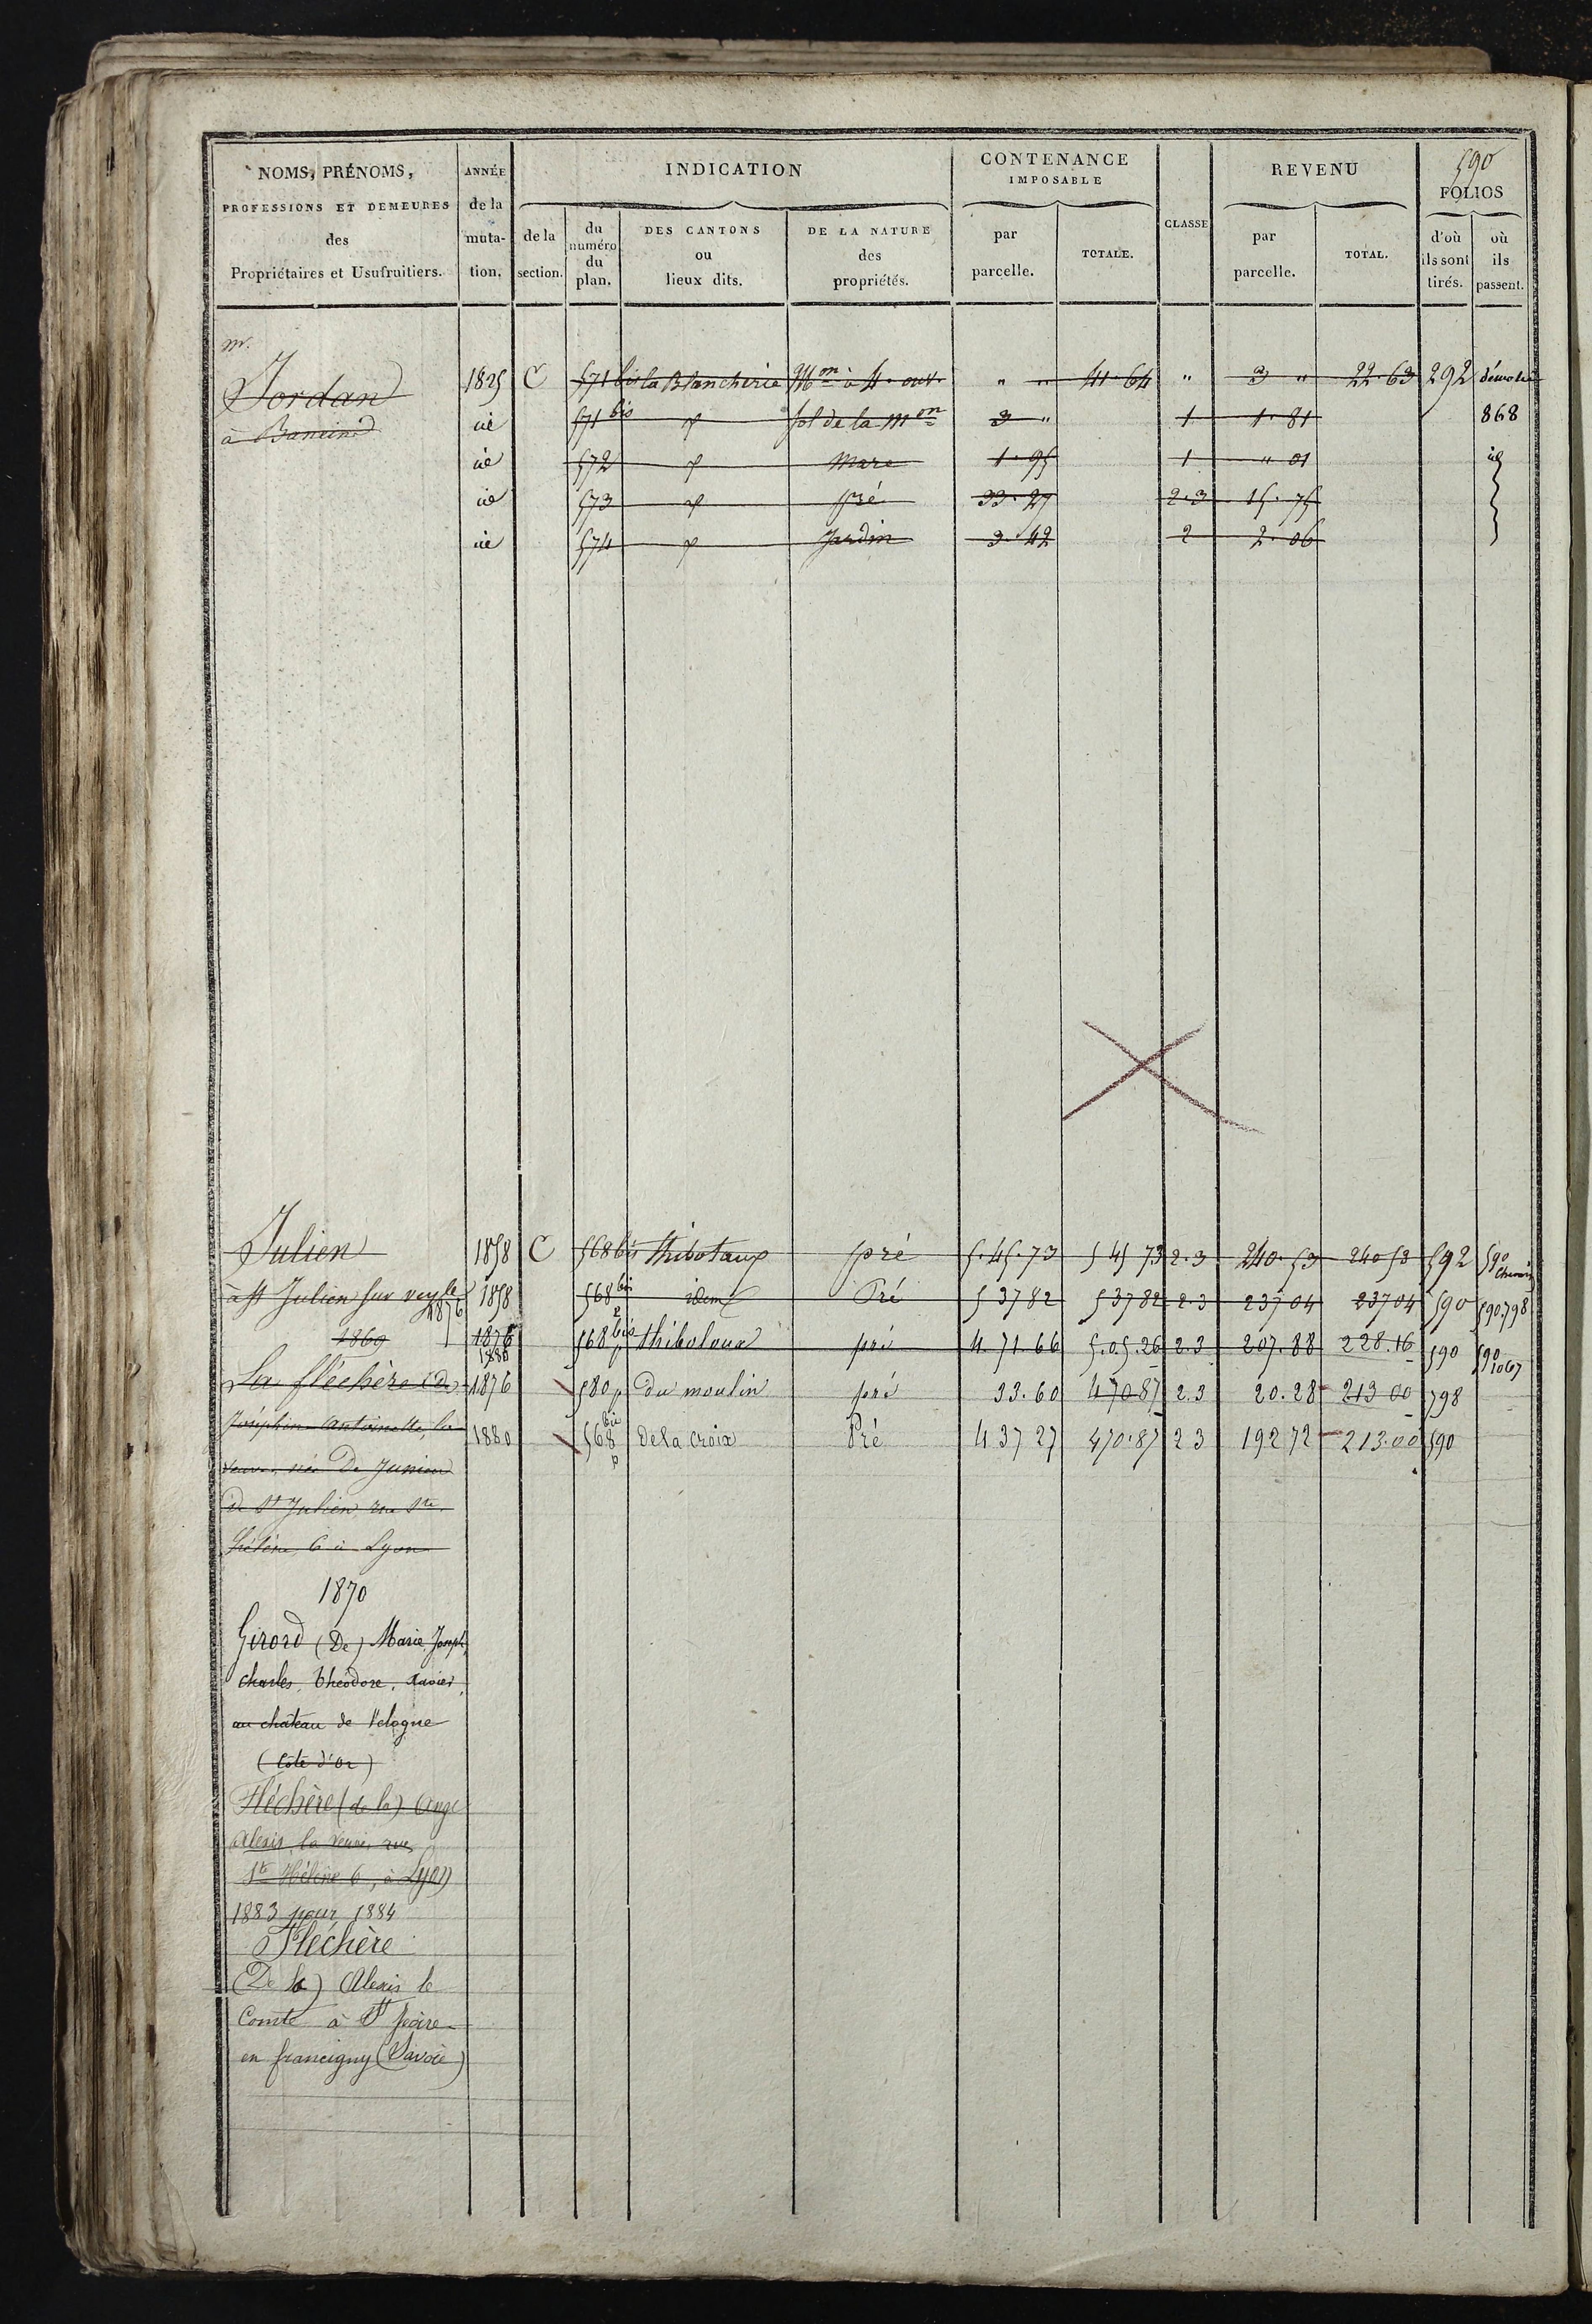 590
NOMS, PRÉNOMS, PROFESSIONS ET DEMEURES des Propriétaires et Usufruitiers.
ANNÉE de la muta- tion.
INDICATION
de la section.
du numéro du plan.
DES CANTONS ou lieux dits.
DE LA NATURE des propriétés.
CONTENANCE IMPOSABLE
par parcelle.
TOTALE.
CLASSE
REVENU
par parcelle.
TOTAL.
FOLIOS
d'où ils sont tirés.
où ils passent.
Mr.
Jordan 1825 C 571 bis la Blancherie Mon à 4. ouv. " " 41.64 " 3 " 22.63 292 démolie
à id 571 bis sol de la Mon 3 " 1 1.81 868
id 572 Mare 1.95 1 " 01 id
id 573 pré 33.27 2.3 15.75
id 574 Jardin 3.42 2 2.06
Julien 1858 C 568 bis thibotaux pré 5.45.73 5 45 73 2.3 240.53 240 53 592 590 Chemin
à St Julien sur veyle 1858 568 bis idem Pré 5 37 82 5 37 82 2.3 237 04 237 04 590 590.798
1876
1869 1876 568 bis p thiboloux pré 4.71.66 5.05.26 2.3 207.88 228.16 590 590 1067
1880
La fléchère (de 1876 580 p du moulin pré 33.60 4 70 87 2.3 20.28 213 00 798
Joséphine Antoinette, la 1880 568 bis p de la croix Pré 4 37 27 4 70.87 2 3 192 72 213.00 590
veuve, née De Junion
de St Julien, rue Ste
hélène 6 à Lyon
1870
Girord (De) Marie, Joseph,
Charles, théodore, Xavier,
au château de Velogne
(Côte d'Or)
Fléchère (de la) Ange
Alexis, la veuve, rue
Ste Hélène 6, à Lyon
1883 pour 1884
Fléchère
(De la) Alexis le
Comte à St Jeoire
en francigny (Savoie)